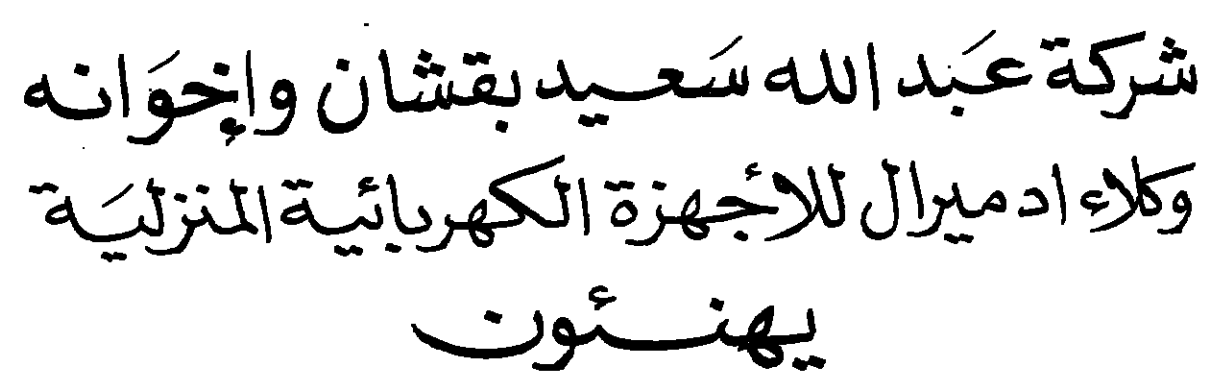 شركة عَبد الله سَعيد بقشان وإخوَانه
وكلاء ادميرال للأجهزة الكهربائية المنزليَة
يهنئون